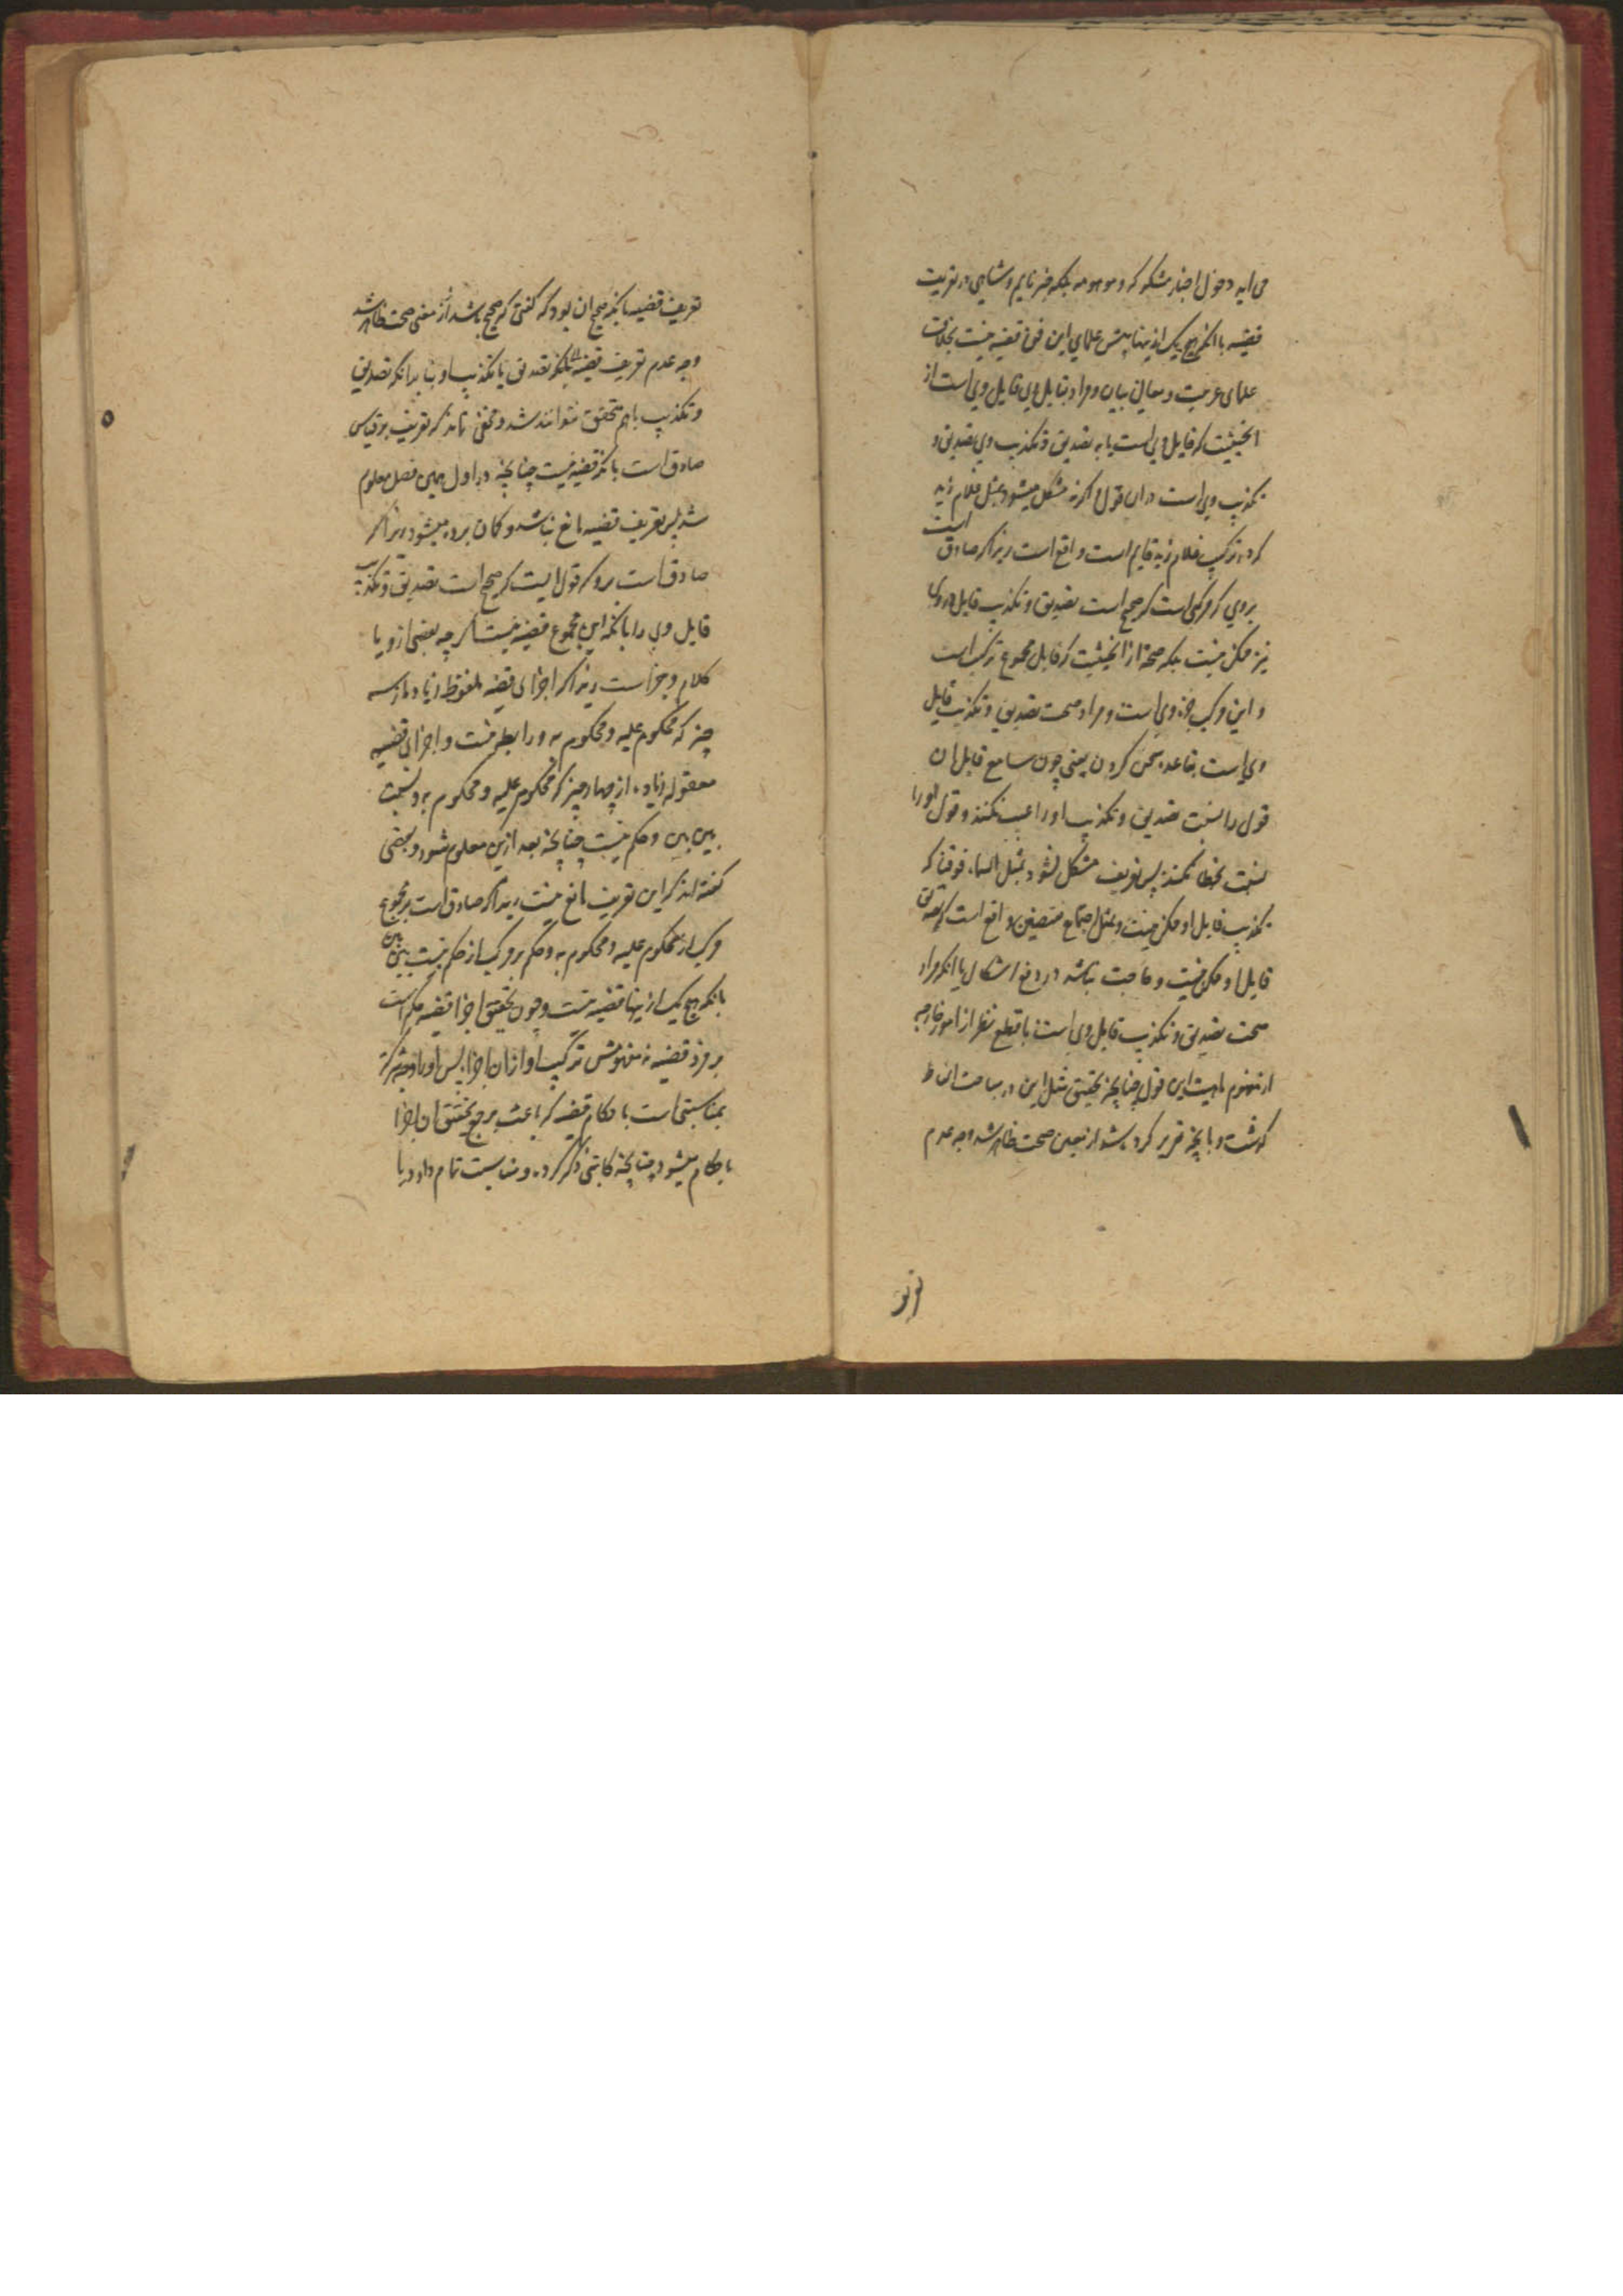 می اید دخول اخبار مشکوکه و موهومه بلکه خبر نایم و ساهی در تعریف
قضیه با انکه هیچ یک ازینها پیش علمای این فن قضیه نیست بخلاف
علمای عربیت و معانی بیان و مراد بقایل وی قایل وی است از
انحیثیت که قایل وی است یا به تصدیق و تکذیب وی تصدیق و
تکذیب وی است دران قول اکرنه مشکل میشود بمثل غلام زید
که در ترکیب غلام زید قایم است واقع است زیراکه صادق است
بروی که مرکبی است که صحیح است تصدیق و تکذیب قایل وی
نیز ممکن نیست بلکه صحة از انحیثیت که قایل مجموع ترکیب است
و این مرکب جزء وی است و مراد صحت تصدیق و تکذیب قایل
وی است بقاعده سخن کردن یعنی چون سامع قایل ان
قول را نسبت تصدیق و تکذیب او را عیب نکنند و قول او را
نسبت بخطا نکنند پس تعریف مشکل نشود بمثل السماء فوقنا که
تکذیب قایل او ممکن نیست و بمثل اجتماع نقیضین واقع است که تصدیق
قایل او ممکن نیست و حاجت نباشد در دفع اشکال یا انکه مراد
صحت تصدیق و تکذیب قایل وی است با قطع نظر از امور خارجه
از مفهوم ماهیت این قول چنانچه تحقیق مثل این در مباحث الفاظ
کذشت و بانچه تقریر کرده شد از تعیین صحت ظاهر شد وجه عدم
تعریف قضیه بانکه صحیح ان بود که کفتی که صحیح باشد از معنی صحت ظاهر شد
وجه عدم تعریف قضیه بانکه تصدیق یا تکذیب او بنا برانکه تصدیق
و تکذیب باهم متحقق نتوانند شد و مخفی نماند که تعریف بر قیاس
صادق است بانکه قضیه نیست چنانچه در اول همین فصل معلوم
شد پس تعریف قضیه مانع نباشد و کمان برده میشود زیراکه
صادق است برو که قولیست که صحیح است تصدیق و تکذیب
قایل وی را بانکه این مجموع قضیه نیست اکرچه بعضی ازو یا
کلام و جزاست زیراکه اجزای قضیه ملفوظه زیاده از سه
چیز که محکوم علیه و محکوم به و رابطه نیست و اجزای قضیه
معقوله زیاده از چهار چیز که محکوم علیه و محکوم به و نسبت
بین بین و حکم نیست چنانچه بعد ازین معلوم شود و بعضی
کفته اند که این تعریف مانع نیست زیراکه صادق است بر مجموع
مرکب از محکوم علیه و محکوم به و حکم بر مرکب از حکم نسبت بین بین
بانکه هیچ یک ازینها قضیه نیست و چون تحقیق اجزا قضیه حکم است
بر فرد قضیه نه مفهومش ترکیب او از ان اجزا پس او را
بمناسبتی است با حکام قضیه که باعث برجع تحقیق ان اجزا
باحکام میشود چنانچه کاتبی ذکر کرده و مناسبت تمام دارد با
تعریف